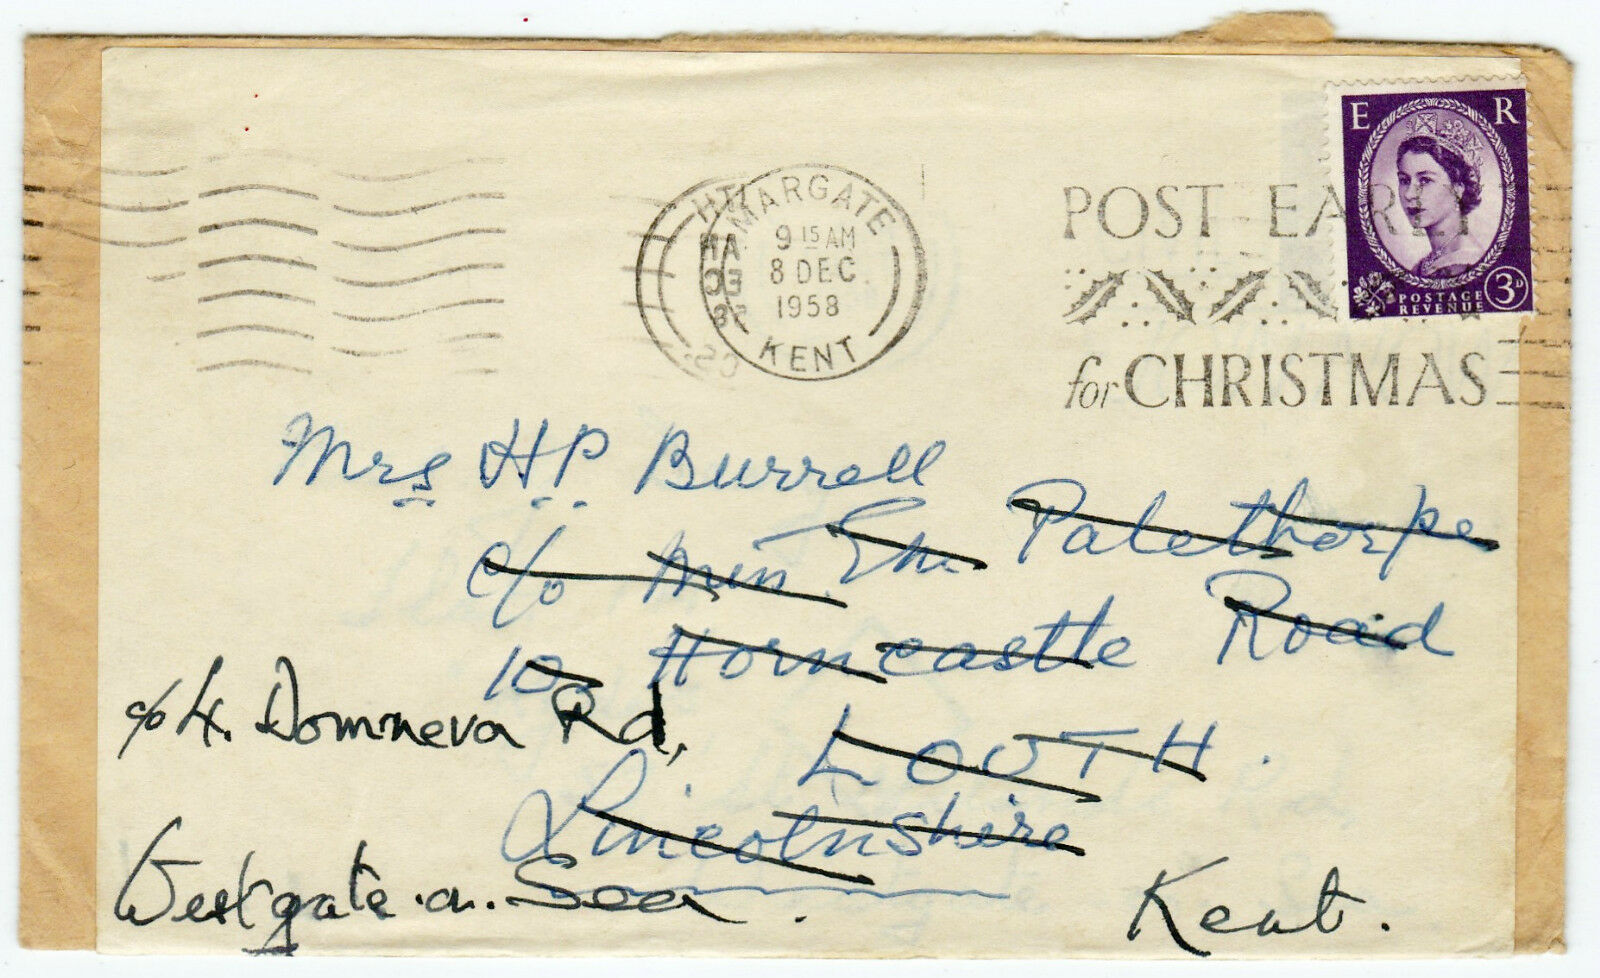 E R
POSTAGE REVENUE 3D
MARGATE
9 15 AM
8 DEC
1958
KENT
POST EARLY
for CHRISTMAS
Mrs H.P. Burrell
c/o Palethorpe
10, Horncastle Road
LOUTH.
Lincolnshire
c/o 4. Domneva Rd,
Westgate-on-Sea.
Kent.